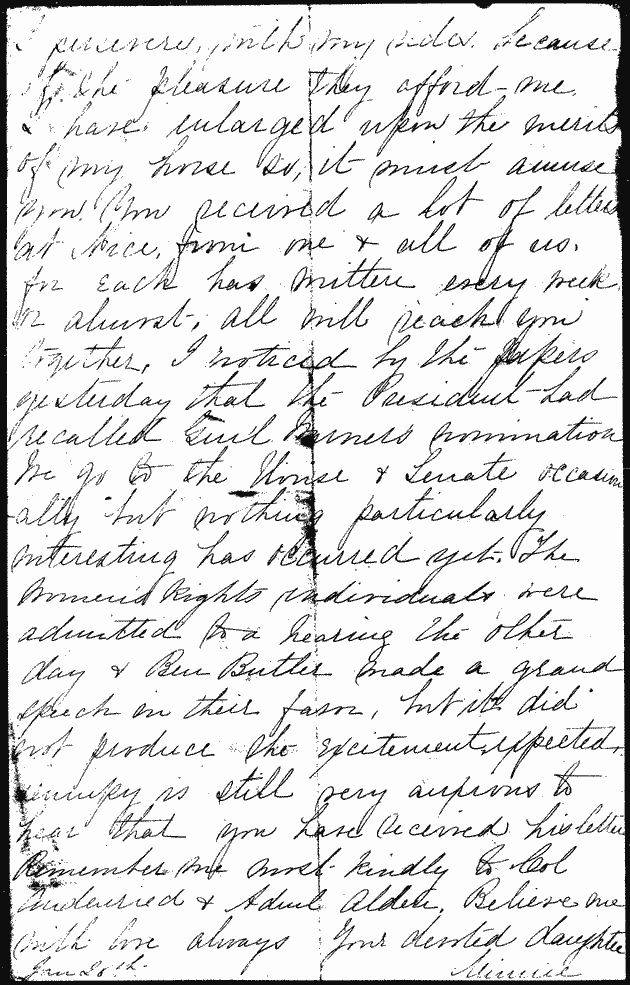 I persevere, with my rides. because
of the pleasure they afford me.
I have enlarged upon the merits
of my horse so, it must amuse
you. You received a lot of letters
at Nice, from one & all of us.
for each has written every week
or almost, all will reach you
together, I noticed by the papers
yesterday that the President had
recalled Genl nomination
We go to the House & Senate occasion
ally but nothing particularly
interesting has occurred yet. The
Womens Rights individuals were
admitted to a hearing the other
day & Ben Butler made a grand
speech in their favor, but it did
not produce the excitement expected.
is still very anxious to
hear that you have received his letter
Remember me most kindly to Col
Audenried & Adml Alden, Believe me
with love always Your devoted daughter
Jan 20th. Minnie